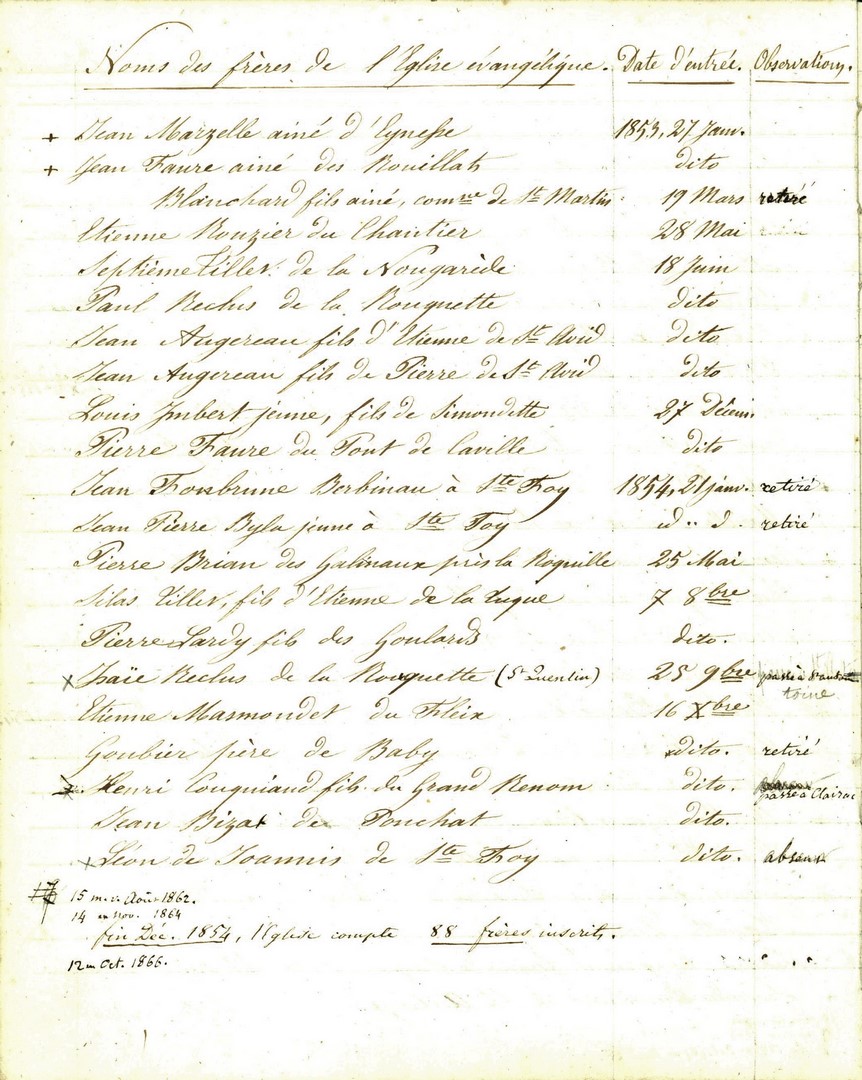 Noms des frères de l'Eglise évangélique. Date d'entrée. Observations.
+ Jean Marzelle ainé d'Eynesse 1853, 27 Janv.
+ Jean Faure ainé des Rouillats dito
Blanchard fils ainé, comne de St Martin 19 Mars retiré
Etienne Rouzier du Chantier 28 Mai
Septième Filler de la Nougarède 18 Juin
Paul Reclus de la Rouquette dito
Jean Augereau fils d'Etienne de St Avid dito
Jean Augereau fils de Pierre de St Avid dito
Louis Imbert jeune, fils de Simondette 27 Décem.
Pierre Faure du Pont de Caville dito
Jean Fonbrune Berbinau à Ste Foy 1854, 21 janv. retiré
Jean Pierre Byla jeune à Ste Foy id.. d. retiré
Pierre Brian des Galinaux près la Roquille 25 Mai
Silas Filler, fils d'Etienne de la Luque 7 8bre
Pierre Lardy fils des Goulards dito.
x Isaïe Reclus de la Rouquette (St Quentin) 25 9bre passé à St Antoine
Etienne Marmondet du Fleix 16 Xbre
Goubier père de Baby dito. retiré
x Henri Couguiaud fils du Grand Renom dito. passé à Clairac
Jean Bizat de Ponchat dito.
x Léon de Joannis de Ste Foy dito. absent
15 m. Août 1862.
14 en Nov. 1864
fin Déc. 1854, l'Eglise compte 88 frères inscrits.
12 en Oct. 1866.